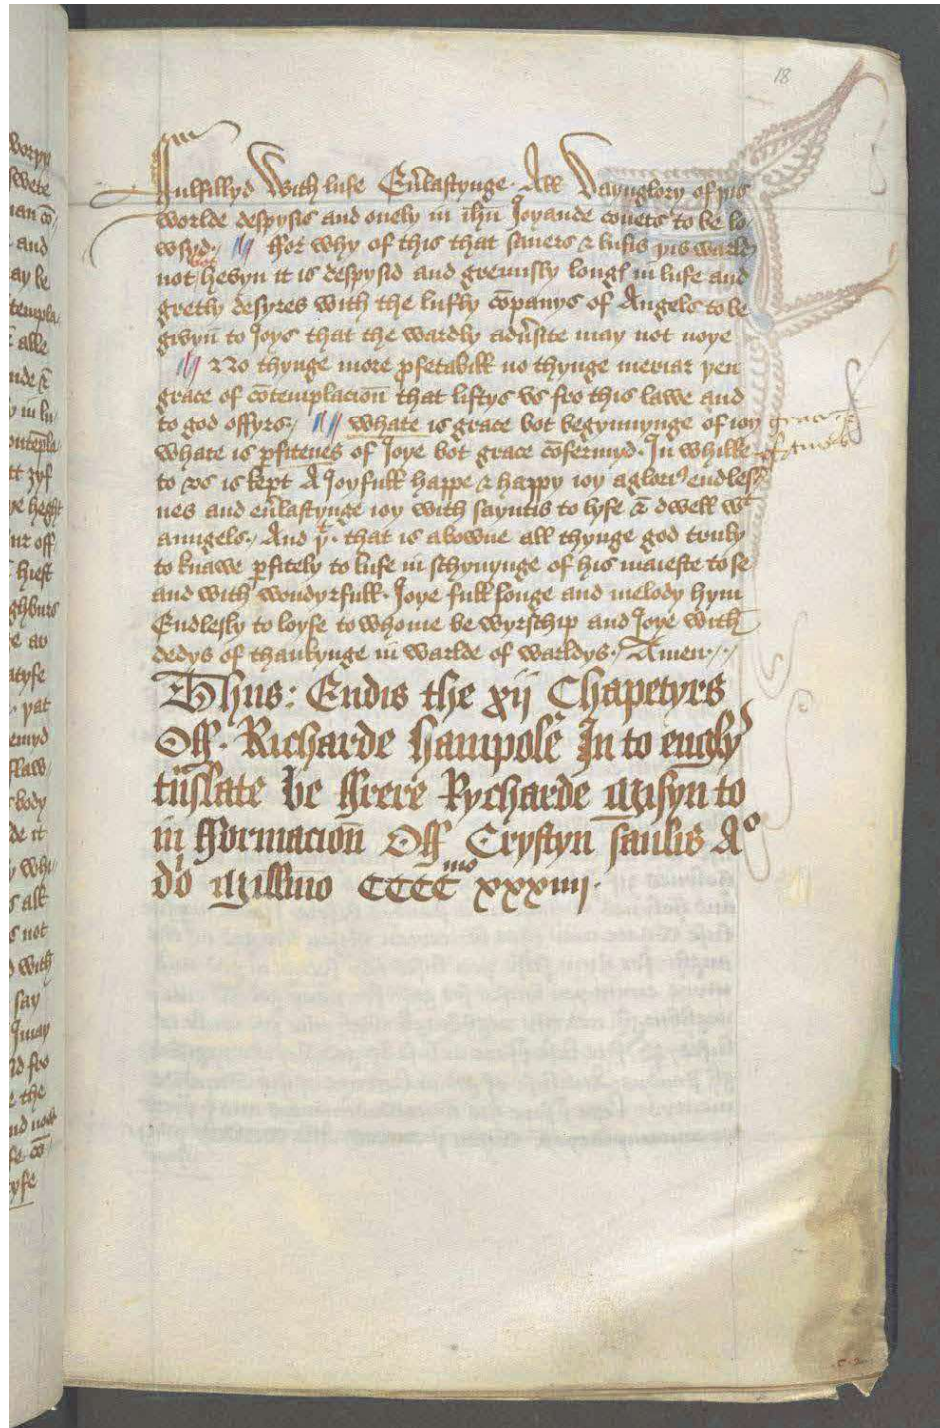 18
Fulfillyd With lufe Eu̅lastynge. All Vaynglory of þis
worlde despysis and onely in ih̅u Joyande couets to be lo
wsyd. ffor why of this that sauers & lufis þis warld
not hevyn it is despysid and greuusly longꝭ in lufe and
gretly desyres with the lufly co̅panys of Angels to be
givyn̅ to Joys that the wardly adu̅site may not noye
No thynge more p̱fetabill no thynge meriar yen
grace of co̅templacion̅ that liftys vs fro this lawe and
to god offyrs. whate is grace bot begynnynge of ioy
whate is p̱fitenes of Joye bot grace co̅fermyd. In whilke
to vs is kept A Joyfull happe & happy ioy a gloriꝰ endles
nes and eu̅lastynge ioy with sayntis to lyfe & dwell wᵗ
anngels. And yᵗ that is abowne all thynge god truly
to knawe p̱fitely to lufe in schynynge of his maieste to se
and with wondyrfull Joye full songe and melody hym
Endlesly to loyfe to whome be wyrschip and Joye with
dedys of thankynge in warlde of warldys. Amen.
Thus: Endis the xij Chapetyrs
Off. Richarde hampole In to englyſ
tn̅slate be ffrere Rycharde Misyn to
in fformacion̅ Off Crystyn̅ saulis Aº
do̅ Millmo̅ CCCCᵐᵒ xxxiiij.